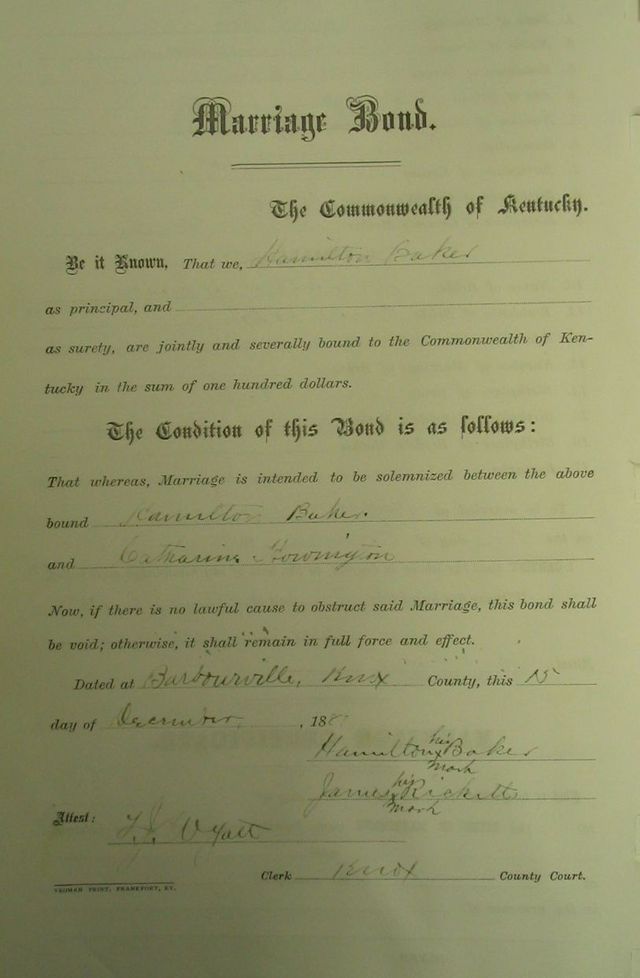 Marriage Bond.
The Commonwealth of Kentucky.
Be it Known, That we, Hamilton Baker
as principal, and
as surety, are jointly and severally bound to the Commonwealth of Ken-
tucky in the sum of one hundred dollars.
The Condition of this Bond is as follows:
That whereas, Marriage is intended to be solemnized between the above
bound Hamilton Baker.
and Catharine
Now, if there is no lawful cause to obstruct said Marriage, this bond shall
be void; otherwise, it shall remain in full force and effect.
Dated at Barbourville, Knox County, this 15
day of December, 188
Hamilton his Baker
mark
James his Rickett
mark
Attest: Wyatt
Clerk Knox County Court.
YEOMAN PRINT, FRANKFORT, KY.